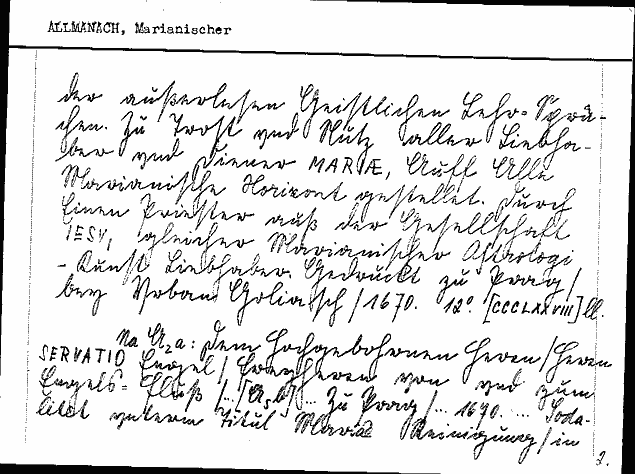 ALLMANACH, Marianischer
der außerlesen Geistlichen Lehr-Sprü-
chen. Zu Trost vnd Nutz aller Liebha-
ber vnd Diener MARIÆ, Auff Alle
Marianische Horizont gestellet. Durch
Einen Priester auß der Gesellschaft
IESV, gleicher Marianischer Astrologi
-Kunst Liebhaber. Gedruckt zu Prag/
bey Urban Goliatsch/1670. 12º. [CCCLXXVIII] ll.
Na A₂a: Dem Hochgebohrnen Herrn/Herrn
SERVATIO Engel/Freyherrn von vnd zum
Engels-Fluß/... [A₅b] ... Zu Prag/... 1670. ... Soda-
litet vnterm Titul Mariæ Reinigung/in
2.